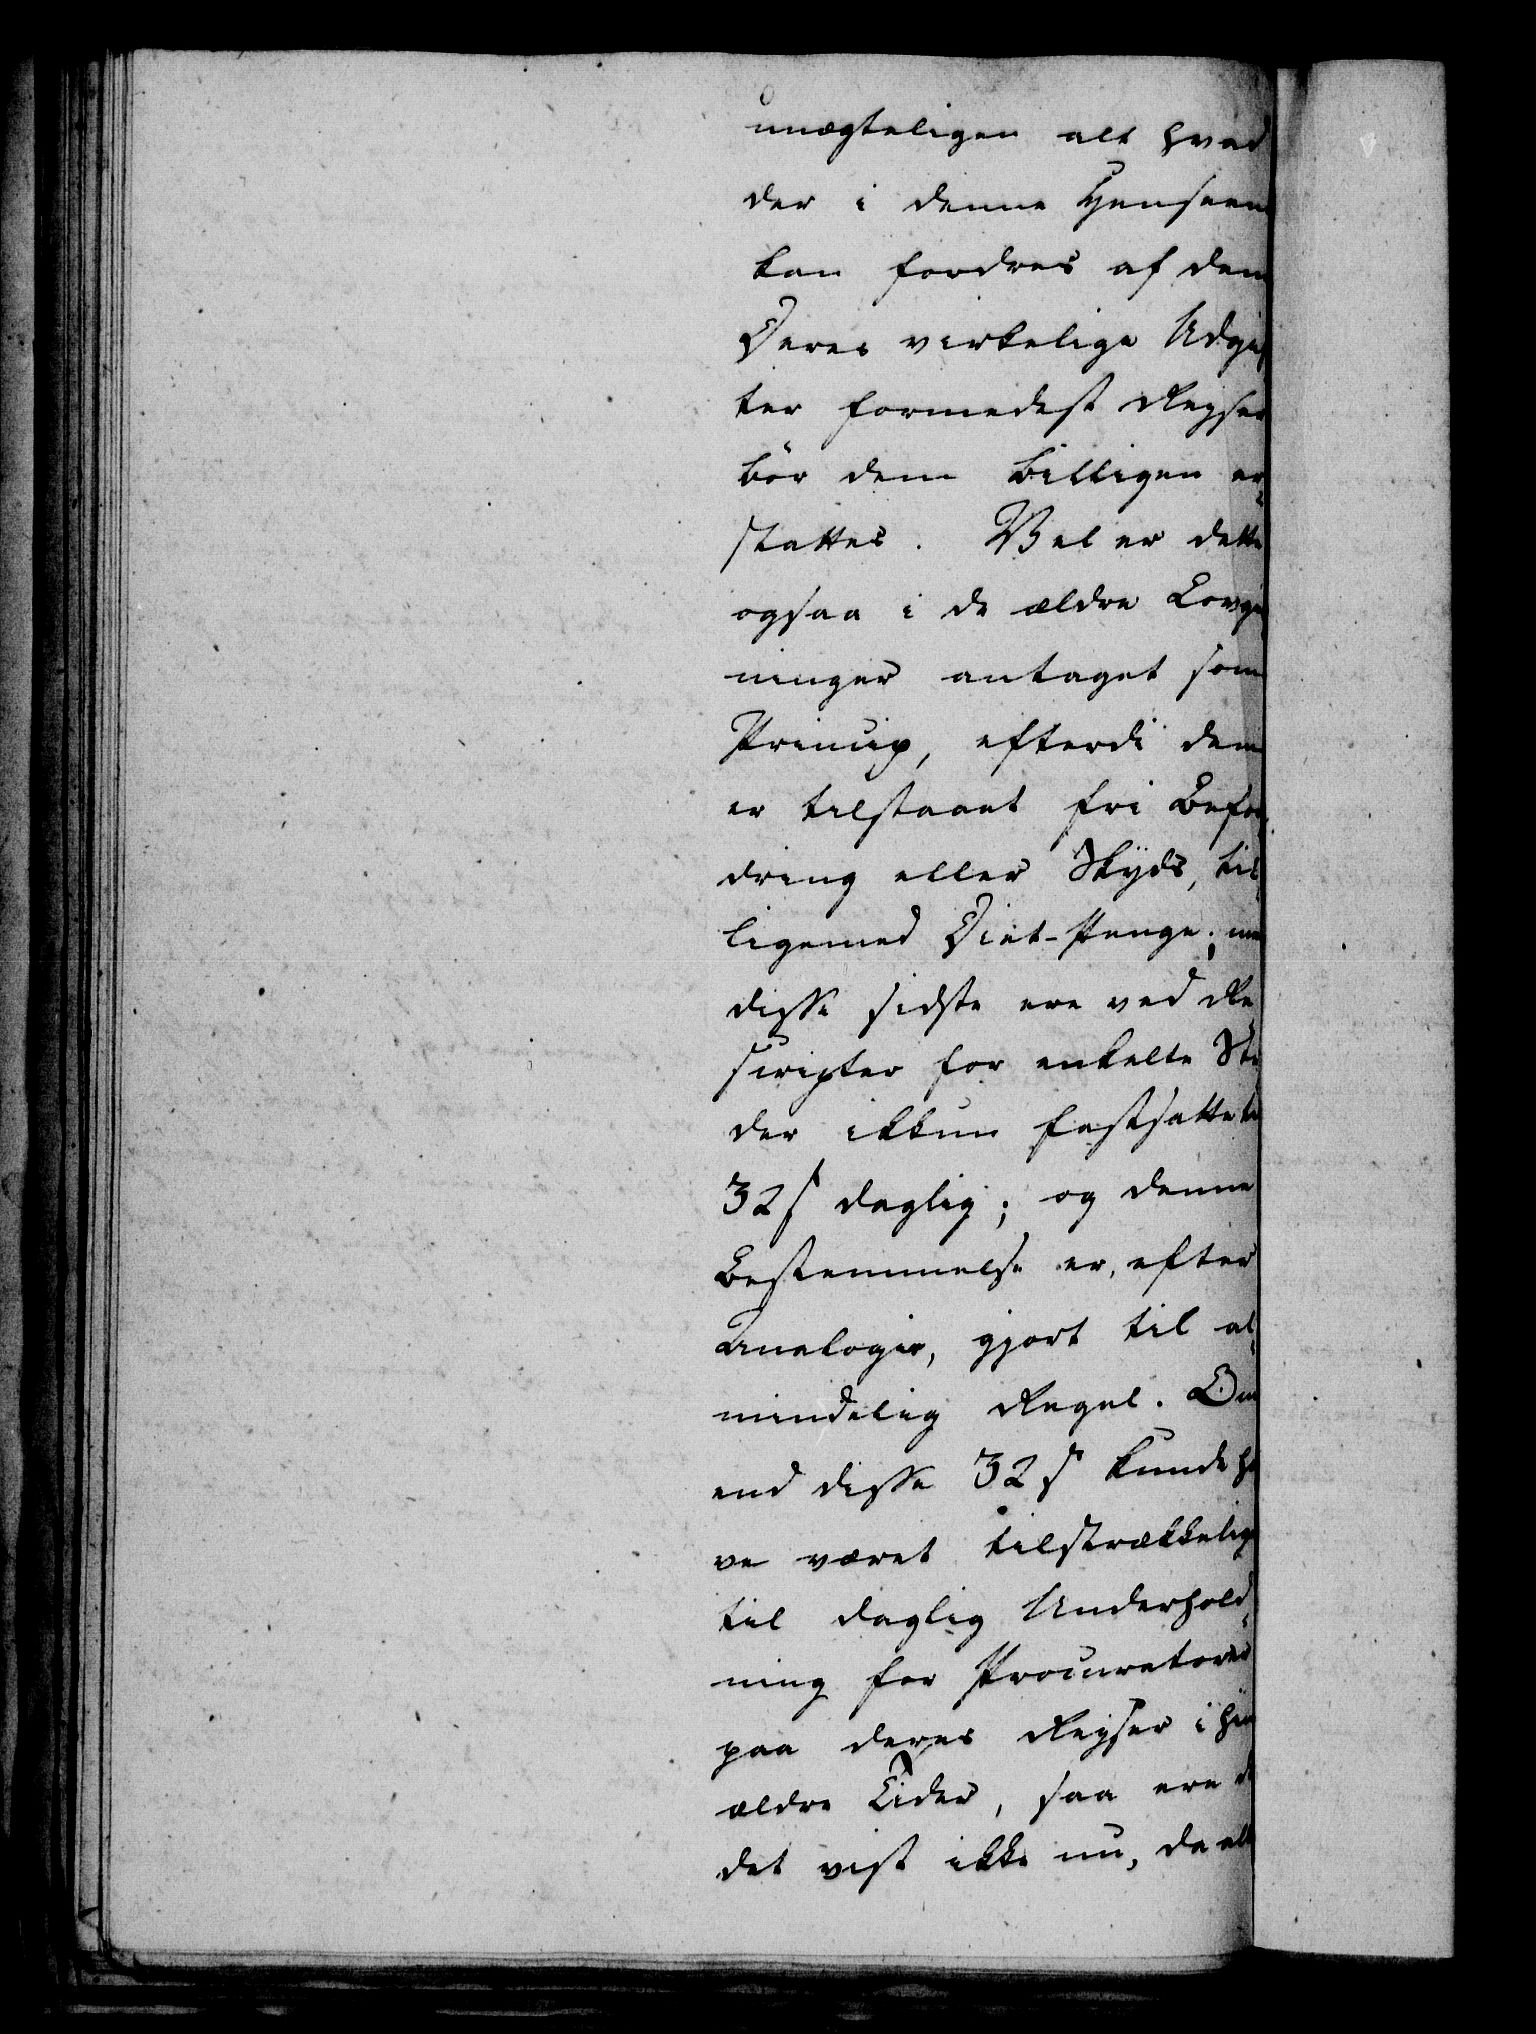 unægteligen alt hvad
der i denne Henseen
kan fordres af dem
Deres virkelige Udgif
ter formedelst Reyser
bör dem billigen er-
stattes. Vel er dette
ogsaa i de ældre Lovgiv
ninger antaget som
Princip, efterdi dem
er tilstaaet fri Befor
dring eller Skyds, til
ligemed Diet-Penge; men
disse sidste ere ved Re
scripter for enkelte Ste
der ikkun fastsatte til
32 s daglig; og denne
Bestemmelse er, efter
Analogie, gjort til al-
mindelig Regel. Om
end disse 32 s kunde ha
ve været tilstrækkelige
til daglig Underhold-
ning for Procuratorer
paa deres Reyser i hine
ældre Tider, saa ere de
det vist ikke nu, da alt